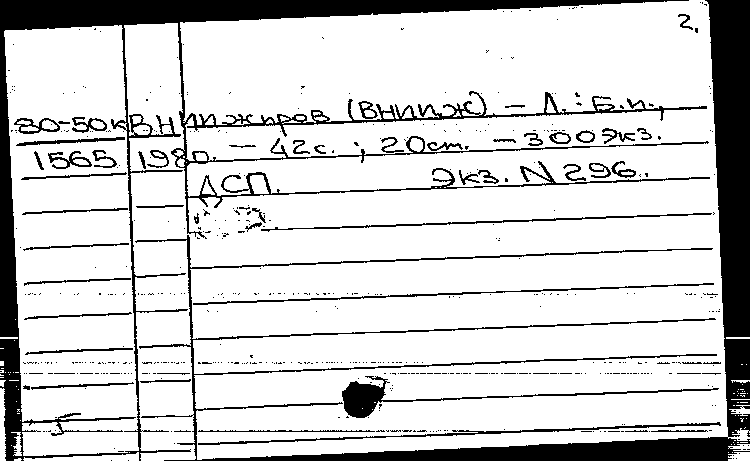 2.
80-50к ВНИИжиров (ВНИИЖ). – Л.: Б.и.,
1565 1980. – 42с. ; 20см. – 300экз.
ДСП. Экз. N 296.